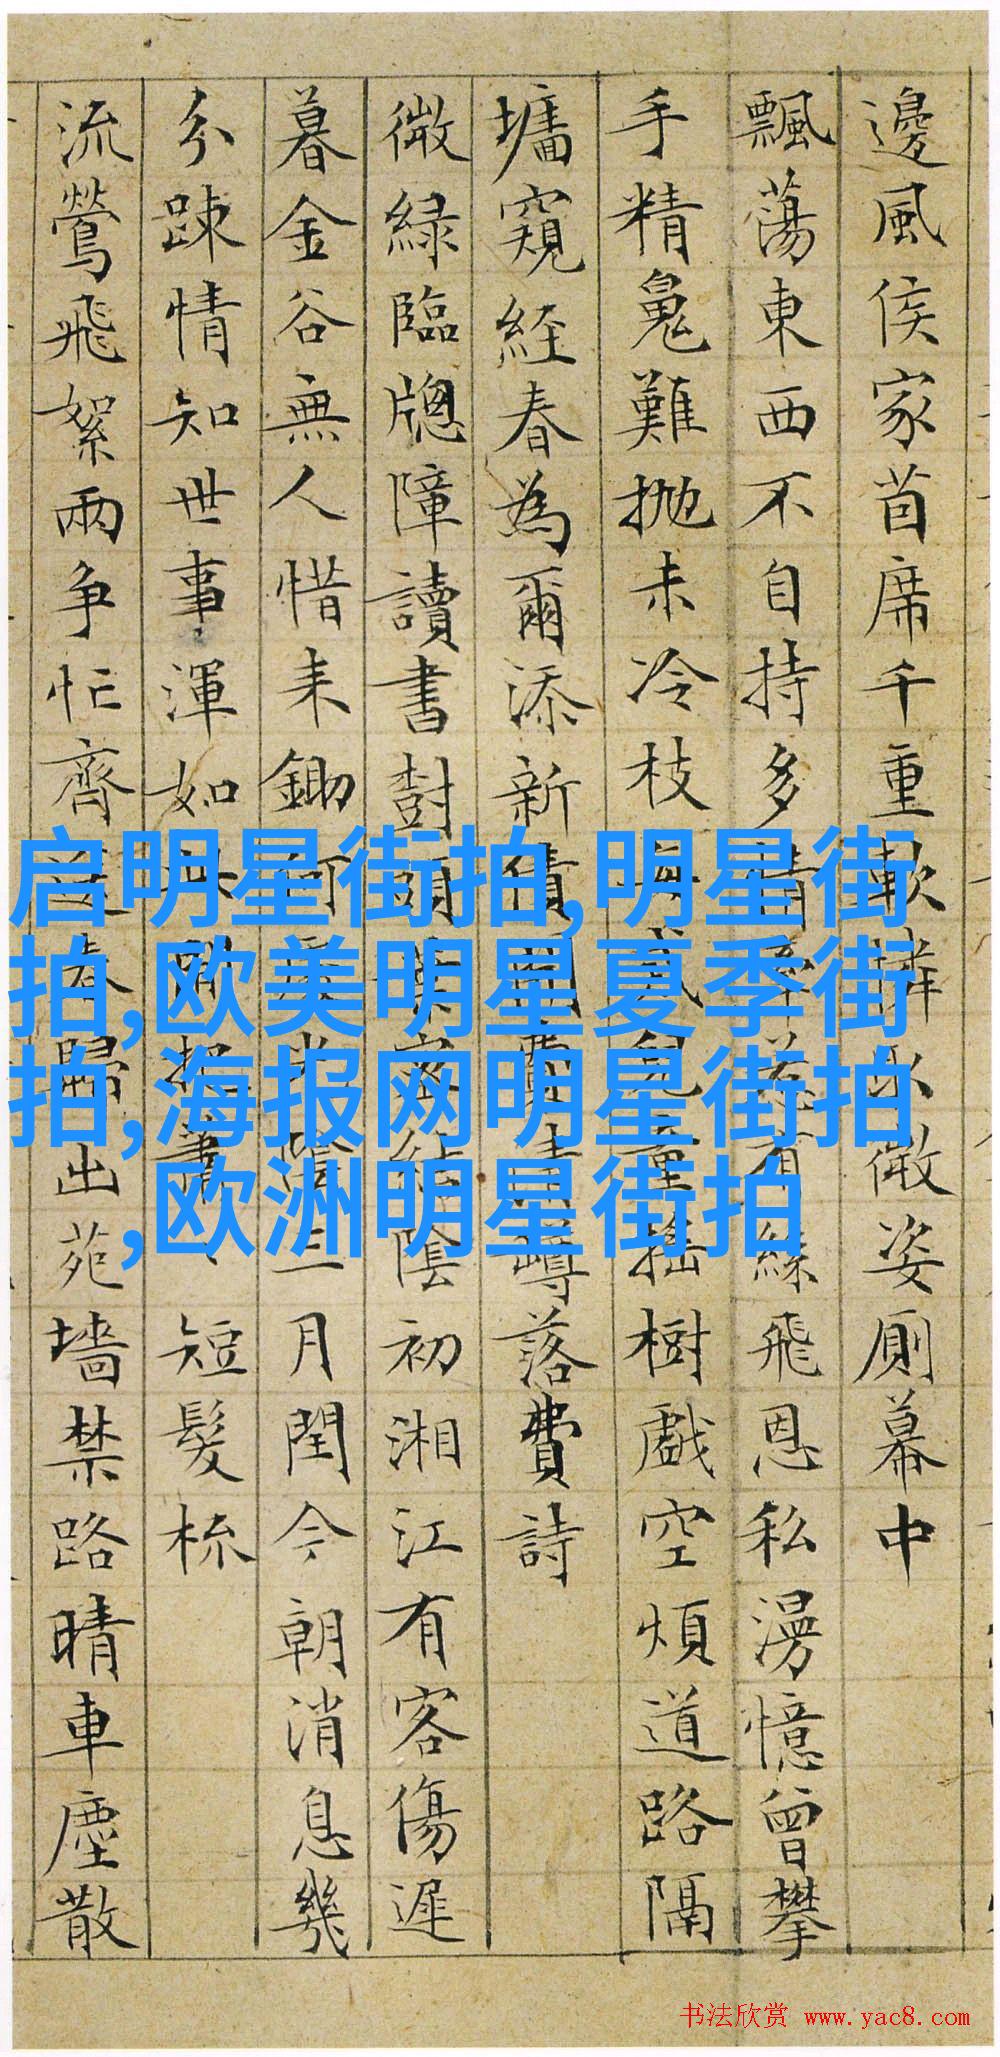 邊風侯家茵席千重軟溷微姿厠幕中
飄蕩東西不自持多情有絲飛恩私漫憶曾攀
手精䰟難抛未冷枝兒童揺樹戲空煩道路隔
墉窺経春為爾添新債落費詩
微緑臨牕障讀書樹頭結陰初湘江有客傷遲
暮金谷無人惜耒鋤何三月閏今朝消息幾
分踈情知世事渾如短髪梳
流鶯飛絮兩争忙齊春歸出苑墻禁路晴車塵散
启明星街拍,明星街
拍,欧美明星夏季街
拍,海报网明星街拍
,欧洲明星街拍
书法欣赏 www.yac8.com